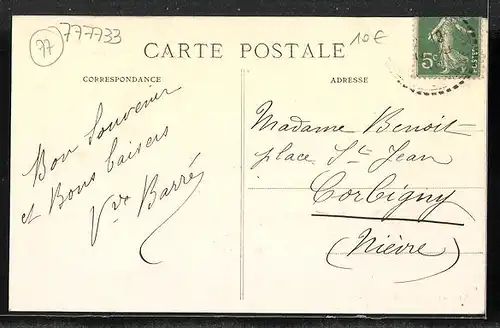 77
777733
10€
CARTE POSTALE
CORRESPONDANCE
Bon Souvenir
et Bons baisers
Vve Barré
ADRESSE
5c
Madame Benoit
place St Jean
Corbigny
(Nièvre)